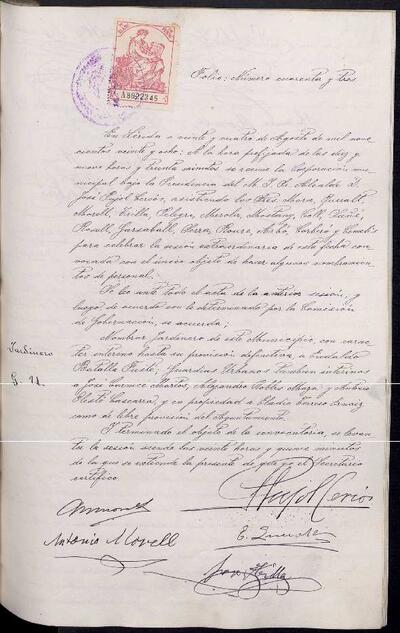 A8022345
Folio: Número cuarenta y tres
En Lérida a veinte y cuatro de Agosto de mil nove-
cientos veinte y ocho: A la hora prefijada de las diez y
nueve horas y treinta minutos se reune la Corporación mu-
nicipal bajo la Presidencia del M. I. Sr. Alcalde D.
José Pujol Cercós, asistiendo los Sres. Mora,
Morell, Trilla, Pelegrí,
Rosell,
para celebrar la sesión extraordinaria de esta fecha con-
vocada con el único objeto de hacer algunos nombramien-
tos de personal.
Se lee ante todo el acta de la anterior sesión, y
luego de acuerdo con lo determinado por la Comisión
de Gobernación, se acuerda:
Jardinero
Nombrar jardinero de este Municipio, con carac-
ter interino hasta su provisión definitiva a Eudaldo
Batalla
G. U.
Guardias Urbanos tambien interinos
a José Alejandro Robles y Antonio
y en propiedad a Eladio
como de libre provisión del Ayuntamiento.
Y terminado el objeto de la convocatoria, se levan-
ta la sesión siendo las veinte horas y quince minutos
de la que se extiende la presente de que yo el Secretario
certifico.
Antonio Morell